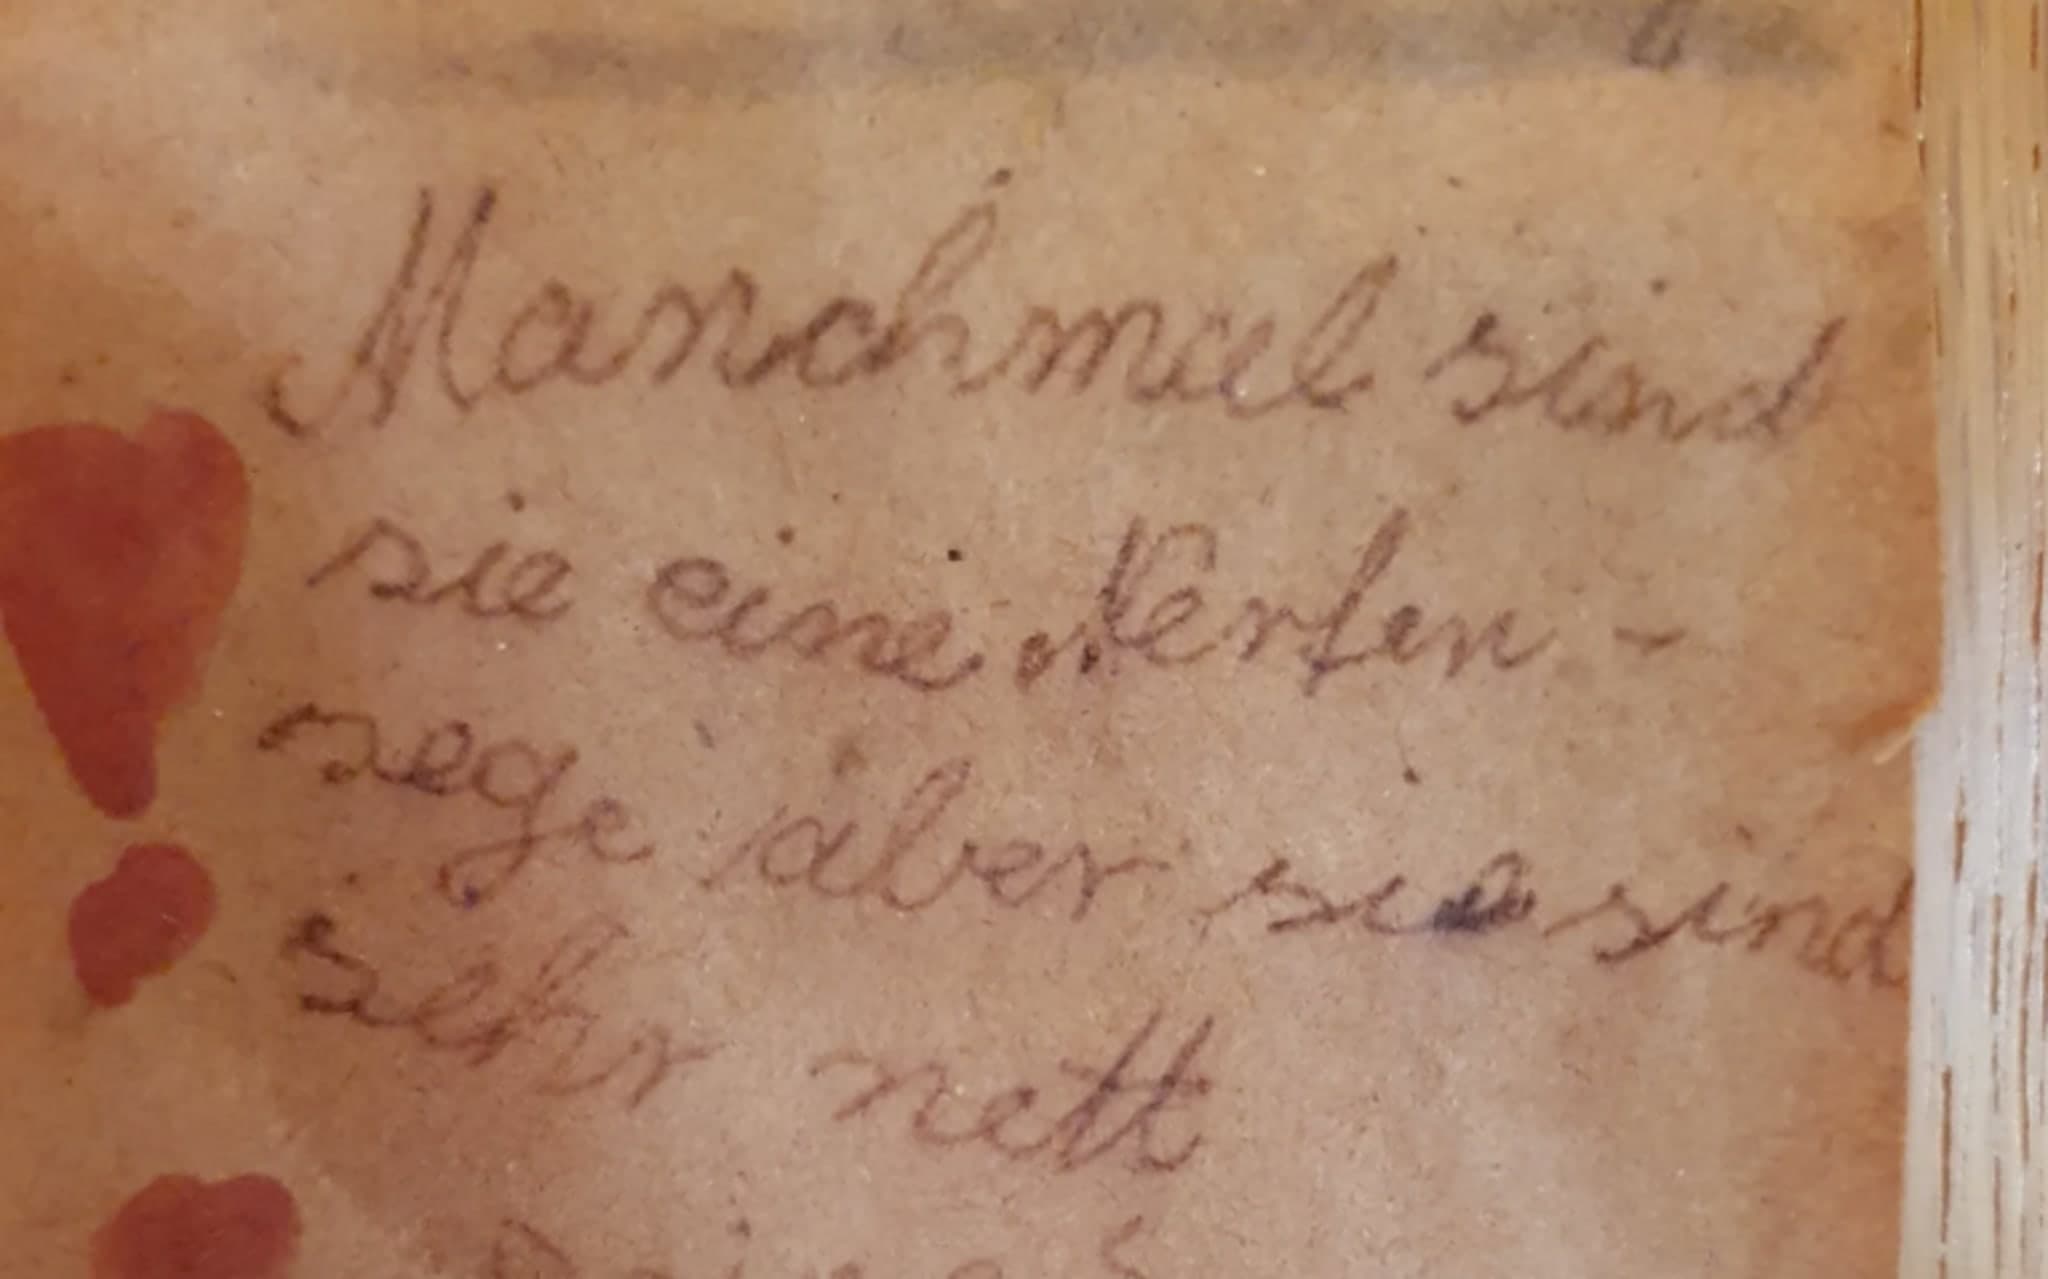 Manchmal sind
sie eine Nerfen -
sege aber sie sind
sehr nett